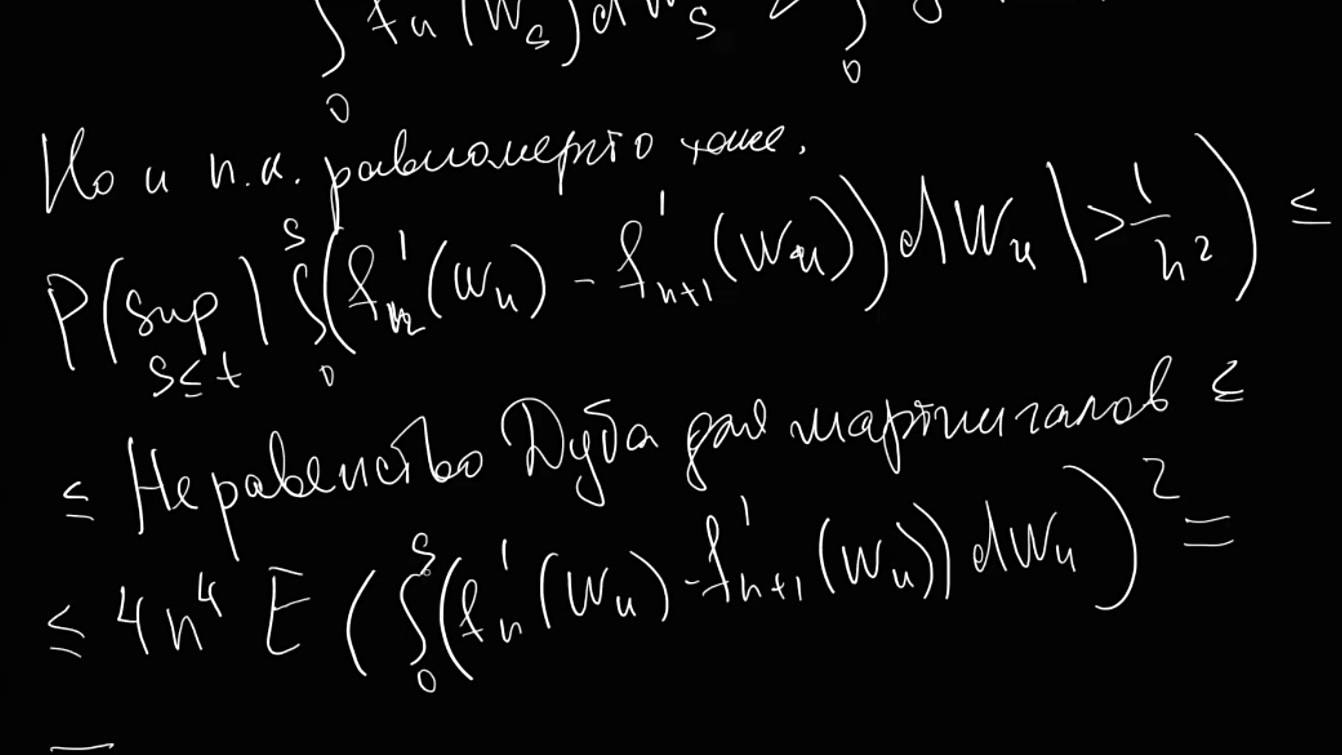 ∫₀ fₙ(W_s)dW_s ∫₀
Но и п.н. равномерно тоже.
P(sup_{s≤t} |∫₀ˢ (fₙ'(W_u) - f'ₙ₊₁(W_u))dW_u| > 1/n²) ≤
≤ Неравенство Дуба для мартингалов ≤
≤ 4n⁴ E(∫₀ˢ (fₙ'(W_u) - f'ₙ₊₁(W_u))dW_u)² =